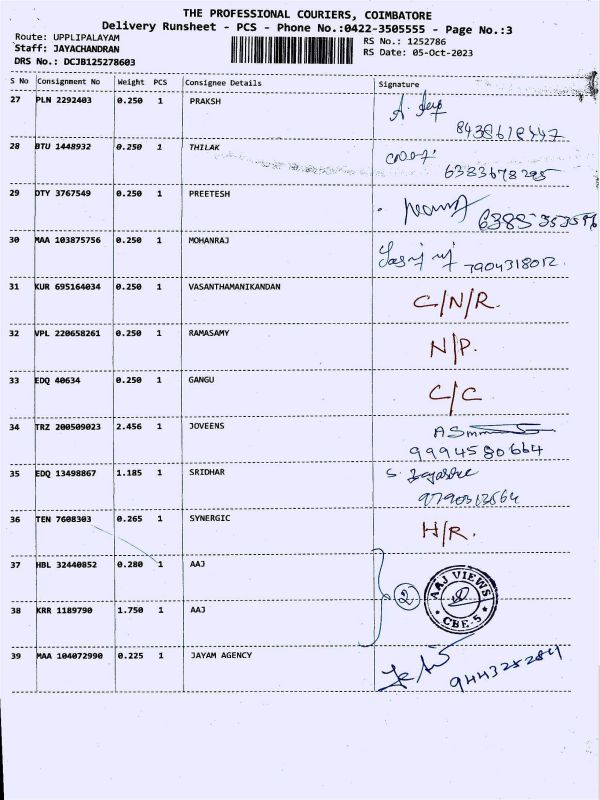 THE PROFESSIONAL COURIERS, COIMBATORE
Delivery Runsheet - PCS - Phone No.:0422-3505555 - Page No.:3
Route: UPPLIPALAYAM
RS No.: 1252786
Staff: JAYACHANDRAN
RS Date: 05-Oct-2023
DRS No.: DCJB125278603
S No Consignment No Weight PCS Consignee Details Signature
27 PLN 2292403 0.250 1 PRAKSH
8438618447
28 BTU 1448932 0.250 1 THILAK
6383678295
29 DTY 3767549 0.250 1 PREETESH
30 MAA 103875756 0.250 1 MOHANRAJ
7904318012
31 KUR 695164034 0.250 1 VASANTHAMANIKANDAN C/N/R.
32 VPL 220658261 0.250 1 RAMASAMY N/P.
33 EDQ 40634 0.250 1 GANGU C/C
34 TRZ 200509023 2.456 1 JOVEENS
9994580664
35 EDQ 13498867 1.185 1 SRIDHAR
36 TEN 7608303 0.265 1 SYNERGIC H/R.
37 HBL 32440852 0.280 1 AAJ
2
AAJ VIEWS
CBE-5
38 KRR 1189790 1.750 1 AAJ
39 MAA 104072990 0.225 1 JAYAM AGENCY